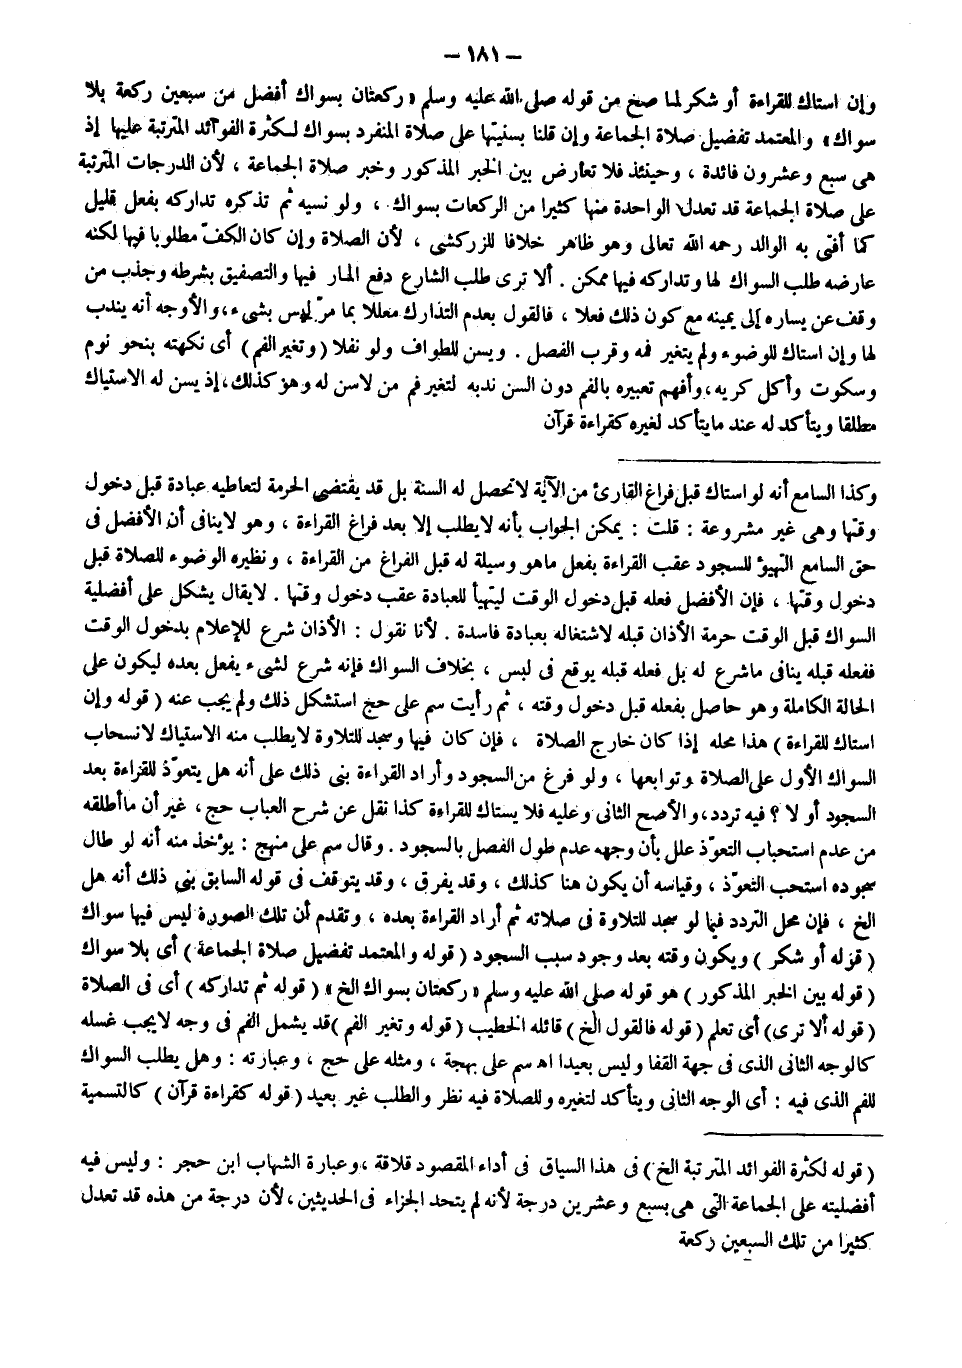 – ١٨١ –
وإن استاك للقراءة أو شكر لما صح من قوله صلى الله عليه وسلم « ركعتان بسواك أفضل من سبعين ركعة بلا
سواك » والمعتمد تفضيل صلاة الجماعة وإن قلنا بسنيتها على صلاة المنفرد بسواك لكثرة الفوائد المترتبة عليها إذ
هى سبع وعشرون فائدة ، وحينئذ فلا تعارض بين الخبر المذكور وخبر صلاة الجماعة ، لأن الدرجات المترتبة
على صلاة الجماعة قد تعدل الواحدة منها كثيرا من الركعات بسواك ، ولو نسيه ثم تذكره تداركه بفعل قليل
كما أفتى به الوالد رحمه الله تعالى وهو ظاهر خلافا للزركشى ، لأن الصلاة وإن كان الكفّ مطلوبا فيها لكنه
عارضه طلب السواك لها وتداركه فيها ممكن . ألا ترى طلب الشارع دفع المار فيها والتصفيق بشرطه وجذب من
وقف عن يساره إلى يمينه مع كون ذلك فعلا ، فالقول بعدم التدارك معللا بما مرّ ليس بشىء ، والأوجه أنه يندب
لها وإن استاك للوضوء ولم يتغير فمه وقرب الفصل . ويسن للطواف ولو نفلا ( وتغير الفم ) أى نكهته بنحو نوم
وسكوت وأكل كريه ، وأفهم تعبيره بالفم دون السن ندبه لتغير فم من لاسن له وهو كذلك ، إذ يسن له الاستياك
مطلقا ويتأكد له عند مايتأكد لغيره كقراءة قرآن
وكذا السامع أنه لو استاك قبل فراغ القارئ من الآية لاتحصل له السنة بل قد يقتضى الحرمة لتعاطيه عبادة قبل دخول
وقتها وهى غير مشروعة : قلت : يمكن الجواب بأنه لايطلب إلا بعد فراغ القراءة ، وهو لاينافى أن الأفضل فى
حق السامع التهيؤ للسجود عقب القراءة بفعل ماهو وسيلة له قبل الفراغ من القراءة ، ونظيره الوضوء للصلاة قبل
دخول وقتها ، فإن الأفضل فعله قبل دخول الوقت ليتهيأ للعبادة عقب دخول وقتها . لايقال يشكل على أفضلية
السواك قبل الوقت حرمة الأذان قبله لاشتغاله بعبادة فاسدة . لأنا نقول : الأذان شرع للإعلام بدخول الوقت
ففعله قبله ينافى ماشرع له بل فعله قبله يوقع فى لبس ، بخلاف السواك فإنه شرع لشىء يفعل بعده ليكون على
الحالة الكاملة وهو حاصل بفعله قبل دخول وقته ، ثم رأيت سم على حج استشكل ذلك ولم يجب عنه ( قوله وإن
استاك للقراءة ) هذا محله إذا كان خارج الصلاة ، فإن كان فيها وسجد للتلاوة لايطلب منه الاستياك لانسحاب
السواك الأول على الصلاة وتوابعها ، ولو فرغ من السجود وأراد القراءة بنى ذلك على أنه هل يتعوّذ للقراءة بعد
السجود أو لا ؟ فيه تردد ، والأصح الثانى وعليه فلا يستاك للقراءة كذا نقل عن شرح العباب حج ، غير أن ماأطلقه
من عدم استحباب التعوّذ علل بأن وجهه عدم طول الفصل بالسجود . وقال سم على منهج : يؤخذ منه أنه لو طال
سجوده استحب التعوّذ ، وقياسه أن يكون هنا كذلك ، وقد يفرق ، وقد يتوقف فى قوله السابق بنى ذلك أنه هل
الخ ، فإن محل التردد فيما لو سجد للتلاوة فى صلاته ثم أراد القراءة بعده ، وتقدم أن تلك الصورة ليس فيها سواك
( قوله أو شكر ) ويكون وقته بعد وجود سبب السجود ( قوله والمعتمد تفضيل صلاة الجماعة ) أى بلا سواك
( قوله بين الخبر المذكور ) هو قوله صلى الله عليه وسلم « ركعتان بسواك الخ » ( قوله ثم تداركه ) أى فى الصلاة
( قوله ألا ترى ) أى تعلم ( قوله فالقول الخ ) قائله الخطيب ( قوله وتغير الفم ) قد يشمل الفم فى وجه لايجب غسله
كالوجه الثانى الذى فى جهة القفا وليس بعيدا اهـ سم على بهجة ، ومثله على حج ، وعبارته : وهل يطلب السواك
للفم الذى فيه : أى الوجه الثانى ويتأكد لتغيره وللصلاة فيه نظر والطلب غير بعيد ( قوله كقراءة قرآن ) كالتسمية
( قوله لكثرة الفوائد المترتبة الخ ) فى هذا السياق فى أداء المقصود قلاقة ، وعبارة الشهاب ابن حجر : وليس فيه
أفضليته على الجماعة التى هى بسبع وعشرين درجة لأنه لم يتحد الجزاء فى الحديثين ، لأن درجة من هذه قد تعدل
كثيرا من تلك السبعين ركعة